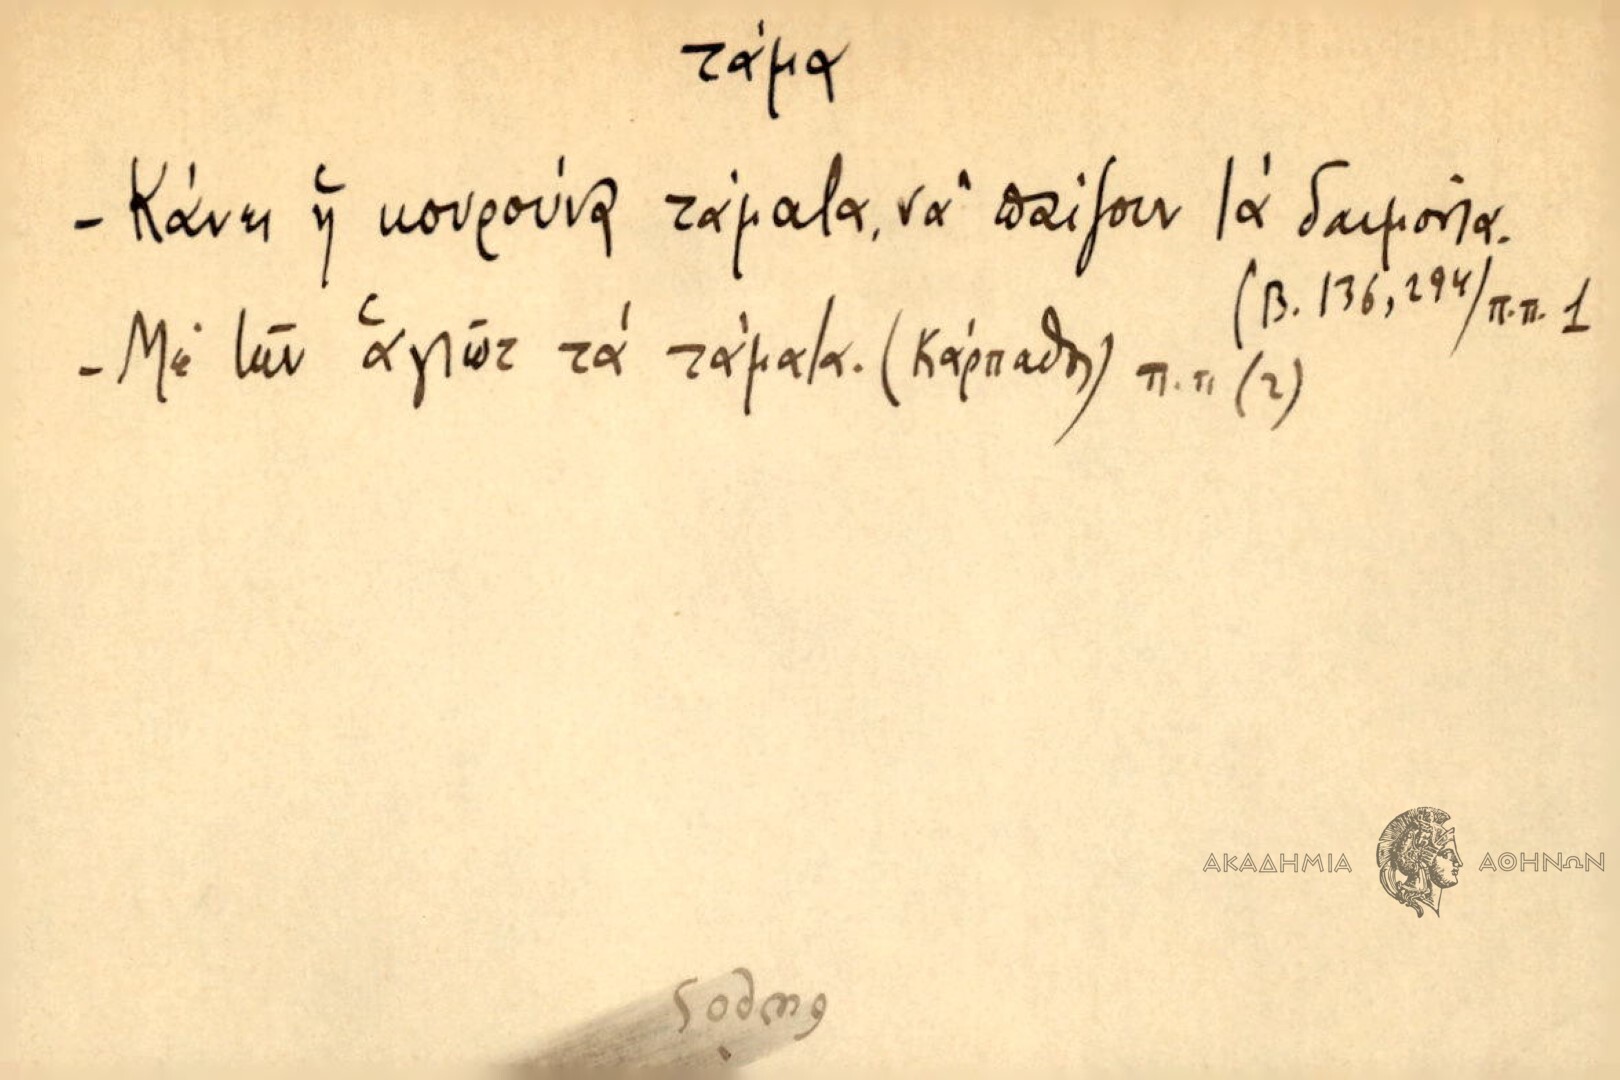 τάμα
- Κάνει ἡ κουρούνα τάματα, νά παίζουν τά δαιμόνια.
(Β. 136, 294) π.π. 1
- Μέ τῶν ἁγιῶ τά τάματα. (Κάρπαθος) π.π (2)
ΑΚΑΔΗΜΙΑ ΑΘΗΝΩΝ